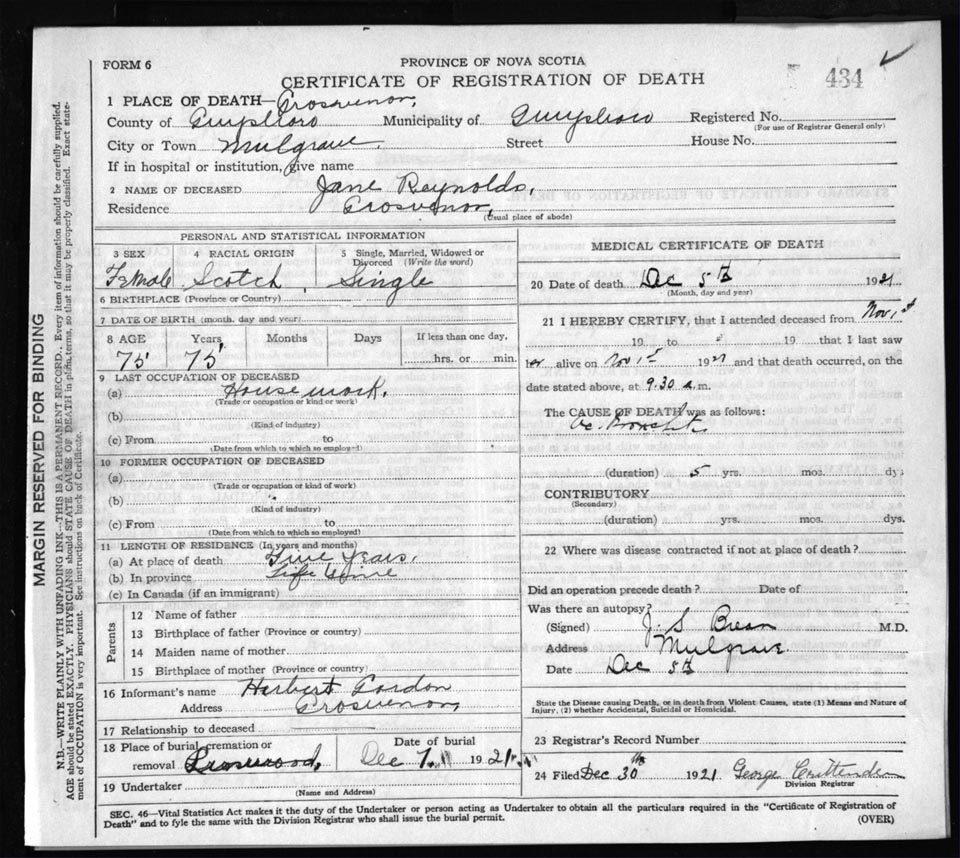 FORM 6
PROVINCE OF NOVA SCOTIA
CERTIFICATE OF REGISTRATION OF DEATH
434
1 PLACE OF DEATH—Grosvenor,
County of Guysboro Municipality of Guysboro Registered No.
(For use of Registrar General only)
City or Town Mulgrave Street House No.
If in hospital or institution, give name
2 NAME OF DECEASED Jane Reynolds,
Residence Grosvenor,
(Usual place of abode)
PERSONAL AND STATISTICAL INFORMATION
3 SEX 4 RACIAL ORIGIN 5 Single, Married, Widowed or Divorced (Write the word)
Female Scotch Single
6 BIRTHPLACE (Province or Country)
7 DATE OF BIRTH (month, day and year)
8 AGE Years Months Days If less than one day,
75 75 hrs. or min.
9 LAST OCCUPATION OF DECEASED
(a) House work.
(Trade or occupation or kind or work)
(b)
(Kind of industry)
(c) From to
(Date from which to which so employed)
10 FORMER OCCUPATION OF DECEASED
(a)
(Trade or occupation or kind of work)
(b)
(Kind of industry)
(c) From to
(Date from which to which so employed)
11 LENGTH OF RESIDENCE (In years and months)
(a) At place of death Five Years,
(b) In province Life time
(c) In Canada (if an immigrant)
Parents
12 Name of father
13 Birthplace of father (Province or country)
14 Maiden name of mother
15 Birthplace of mother (Province or country)
16 Informant's name Herbert Gordon
Address Grosvenor
17 Relationship to deceased
18 Place of burial, cremation or removal Date of burial
Dec 7 1921
19 Undertaker
(Name and Address)
MEDICAL CERTIFICATE OF DEATH
20 Date of death Dec 5th 1921
(Month, day and year)
21 I HEREBY CERTIFY, that I attended deceased from Nov 1st
19 to 19 that I last saw
her alive on Nov 1st 1921 and that death occurred, on the
date stated above, at 9.30 a.m.
The CAUSE OF DEATH was as follows:
(duration) 5 yrs. mos. dys
CONTRIBUTORY
(Secondary)
(duration) yrs. mos. dys.
22 Where was disease contracted if not at place of death?
Did an operation precede death? Date of
Was there an autopsy?
(Signed) J. S. M.D.
Address Mulgrave
Date Dec 5th
State the Disease causing Death, or in death from Violent Causes, state (1) Means and Nature of
Injury, (2) whether Accidental, Suicidal or Homicidal.
23 Registrar's Record Number
24 Filed Dec 30th 1921 George Crittenden
Division Registrar
SEC. 46—Vital Statistics Act makes it the duty of the Undertaker or person acting as Undertaker to obtain all the particulars required in the "Certificate of Registration of
Death" and to fyle the same with the Division Registrar who shall issue the burial permit.
(OVER)
MARGIN RESERVED FOR BINDING
N.B.—WRITE PLAINLY WITH UNFADING INK—THIS IS A PERMANENT RECORD. Every item of information should be carefully supplied.
AGE should be stated EXACTLY. PHYSICIANS should STATE CAUSE OF DEATH in plain terms, so that it may be properly classified. Exact state-
ment of OCCUPATION is very important. See instructions on back of Certificate.